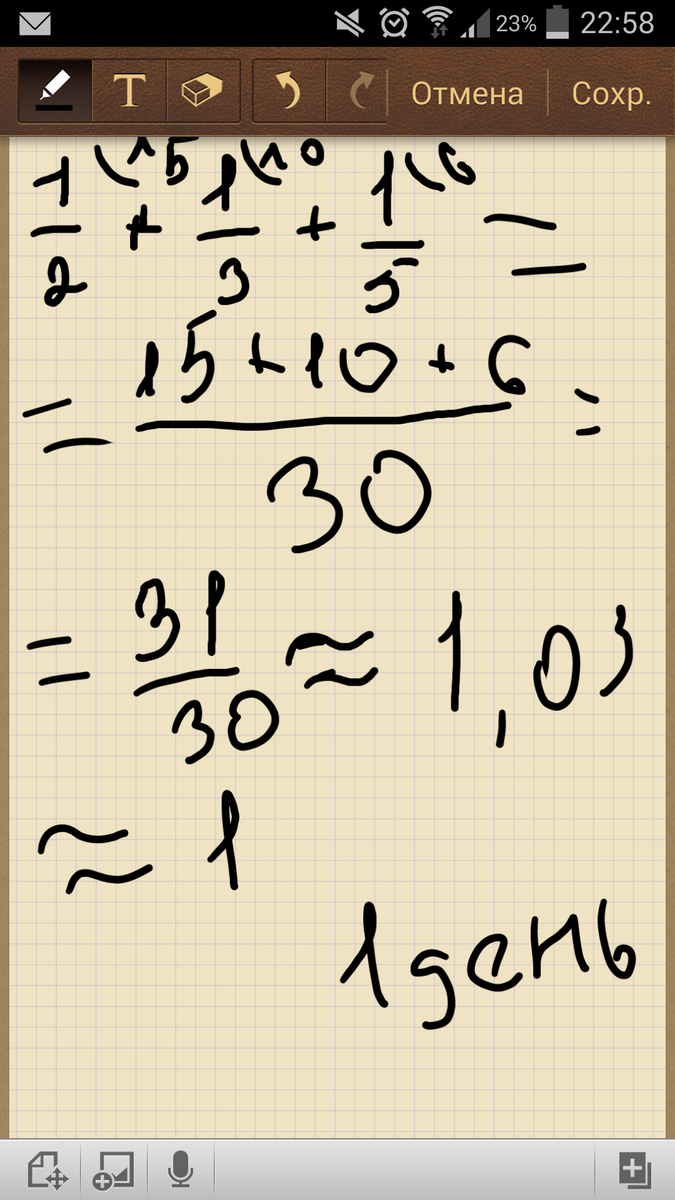 23% 22:58
T Отмена Сохр.
1/2 (15 + 1/3 (10 + 1/5 (6 =
= 15+10+6/30 =
= 31/30 ≈ 1,03
≈ 1
1 день